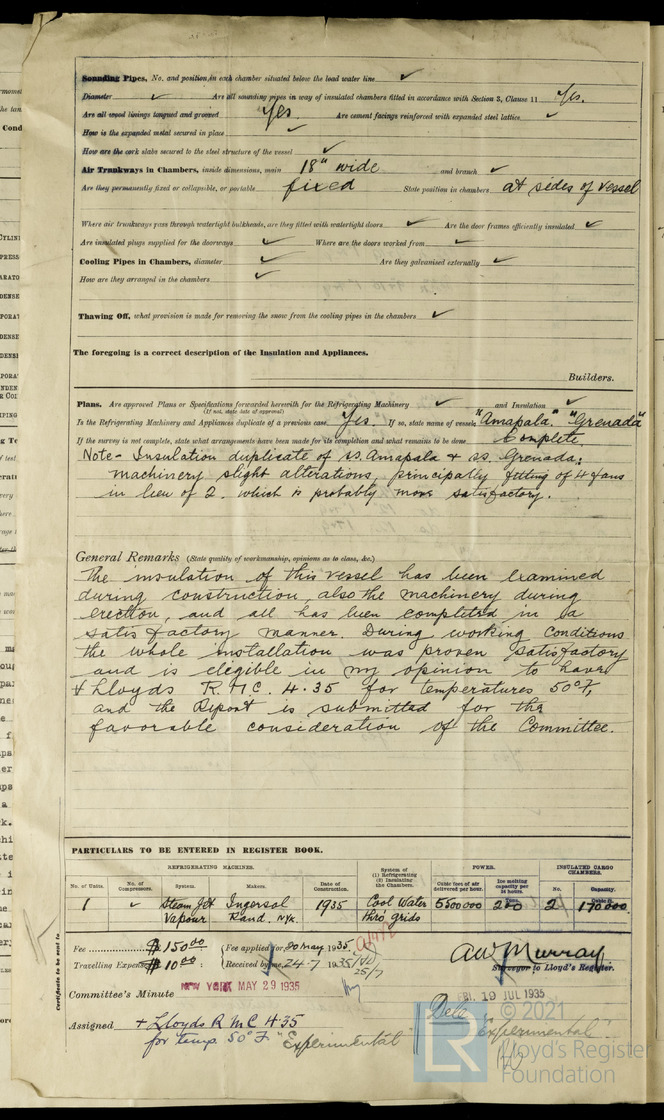 Sounding Pipes, No. and position, in each chamber situated below the load water line ✓
Diameter ✓ Are all sounding pipes in way of insulated chambers fitted in accordance with Section 3, Clause 11 Yes.
Are all wood linings tongued and grooved Yes. Are cement facings reinforced with expanded steel lattice ✓
How is the expanded metal secured in place ✓
How are the cork slabs secured to the steel structure of the vessel ✓
Air Trunkways in Chambers, inside dimensions, main 18" wide and branch ✓
Are they permanently fixed or collapsible, or portable fixed State position in chambers at sides of vessel
Where air trunkways pass through watertight bulkheads, are they fitted with watertight doors ✓ Are the door frames efficiently insulated ✓
Are insulated plugs supplied for the doorways ✓ Where are the doors worked from ✓
Cooling Pipes in Chambers, diameter ✓ Are they galvanised externally ✓
How are they arranged in the chambers ✓
Thawing Off, what provision is made for removing the snow from the cooling pipes in the chambers ✓
The foregoing is a correct description of the Insulation and Appliances.
Builders.
Plans. Are approved Plans or Specifications forwarded herewith for the Refrigerating Machinery ✓ and Insulation ✓
(If not, state date of approval)
Is the Refrigerating Machinery and Appliances duplicate of a previous case Yes. If so, state name of vessel "Amapala." "Grenada"
If the survey is not complete, state what arrangements have been made for its completion and what remains to be done Complete
Note - Insulation duplicate of ss. Amapala & ss. Grenada;
machinery slight alterations, principally fitting of 4 fans
in lieu of 2. which is probably more satisfactory.
General Remarks (State quality of workmanship, opinions as to class, &c.)
The insulation of this vessel has been examined
during construction, also the machinery during
erection, and all has been completed in a
satisfactory manner. During working conditions
the whole installation was proven satisfactory
and is eligible in my opinion to have
+ Lloyds R.M.C. 4.35 for temperatures 50°F,
and the Report is submitted for the
favorable consideration of the Committee.
PARTICULARS TO BE ENTERED IN REGISTER BOOK.
REFRIGERATING MACHINES. System of (1) Refrigerating (2) Insulating the Chambers. POWER. INSULATED CARGO CHAMBERS.
No. of Units. No. of Compressors. System. Makers. Date of Construction. Cubic feet of air delivered per hour. Ice melting capacity per 24 hours. No. Capacity.
1 ✓ Steam Jet Ingersol 1935 Cool Water 5500000 2 190.000
Vapour Rand. NYK. thro' grids
Fee $150.00 Fee applied for, 20 May 1935
Travelling Expenses $10.00 : Received by me, 24-7 1935 25/7
AW Murray
Surveyor to Lloyd's Register.
Certificate to be sent to
Committee's Minute NEW YORK MAY 29 1935 FRI. 19 JUL 1935
Assigned + Lloyds R M C 4.35 Dele "Experimental"
for temp. 50°F "Experimental"
© 2021
LR
Lloyd's Register
Foundation